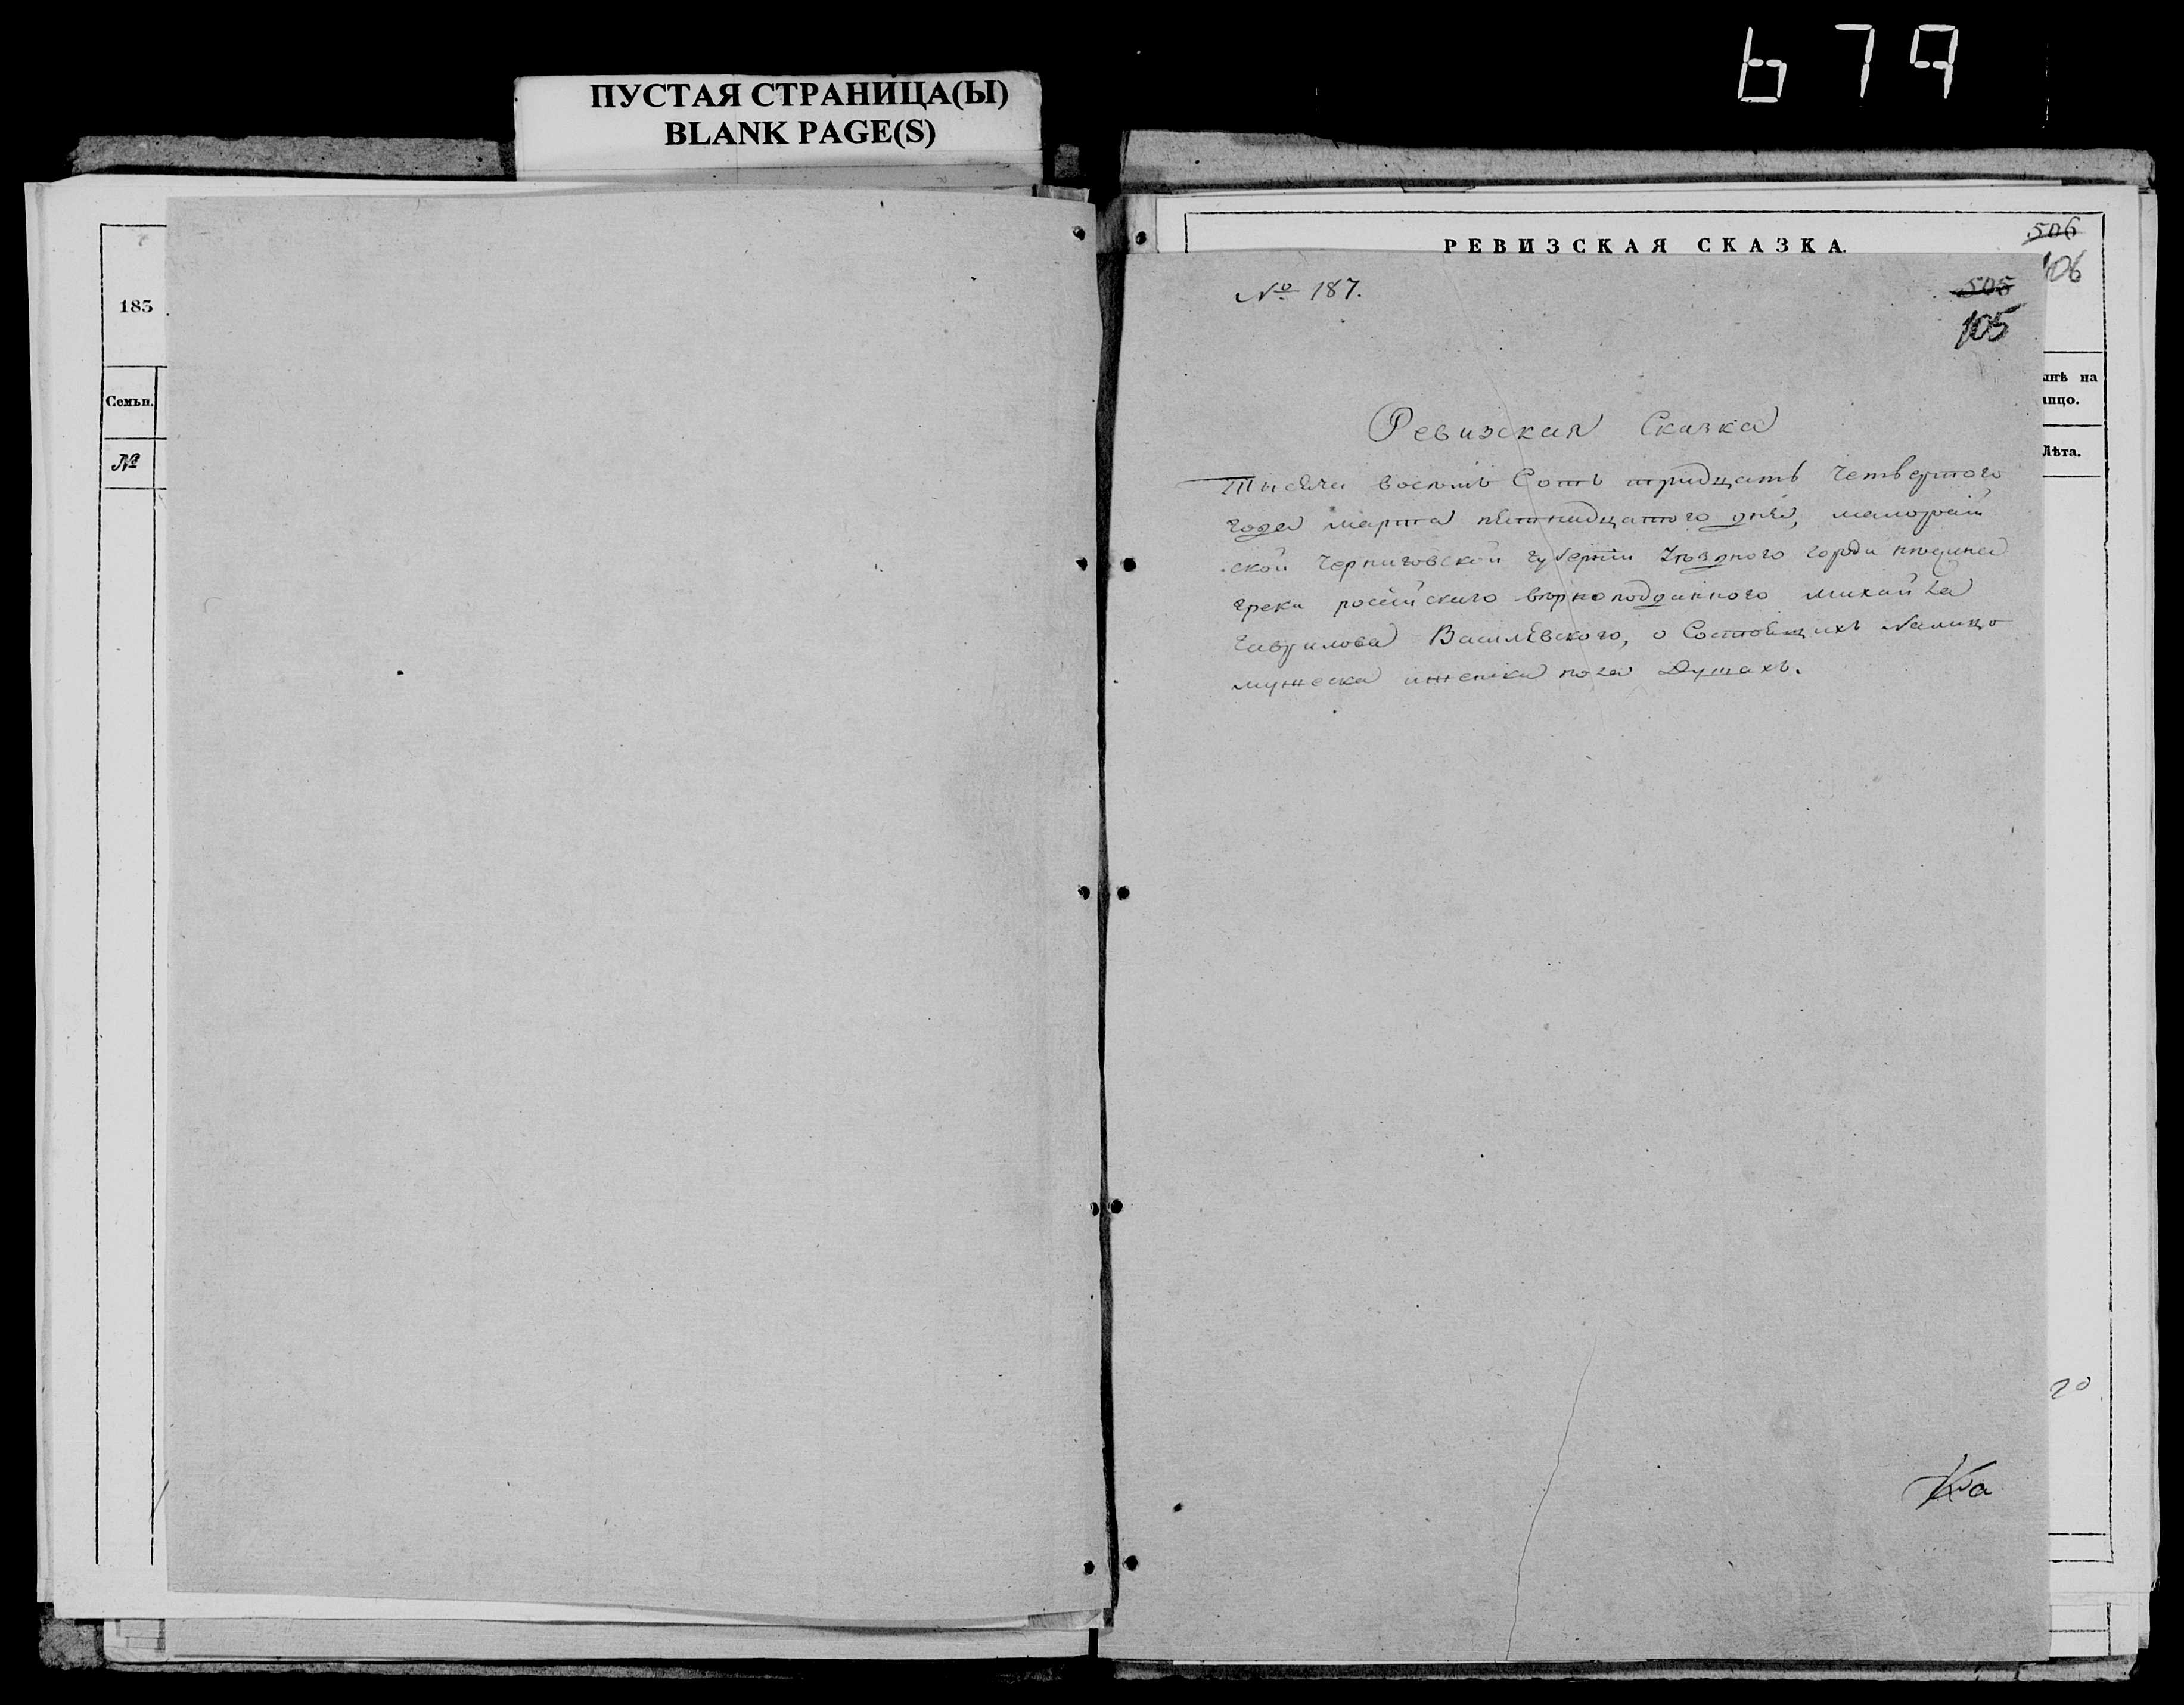 679
ПУСТАЯ СТРАНИЦА(Ы)
BLANK PAGE(S)
183
Семьи.
№
РЕВИЗСКАЯ СКАЗКА.
506
106
№ 187.
505
105
ынѣ на
лицо.
Лѣта.
Ревизская Сказка
Тысяча восемь Сотъ тридцать Четвертого
года марта пятнадцатого дня, малороссій
ской Черниговской губерніи Уѣздного города нѣжина
грека россійского вѣрноподданного михайла
Гаврилова Василѣвского, о Состоящихъ Налицо
мужеска иженска пола Душахъ.
20